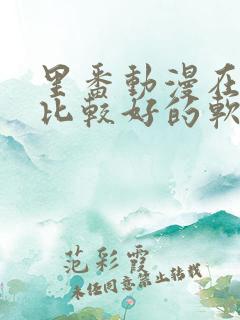 里番動漫在
比較好的軟
范彩霞
未经同意禁止转载